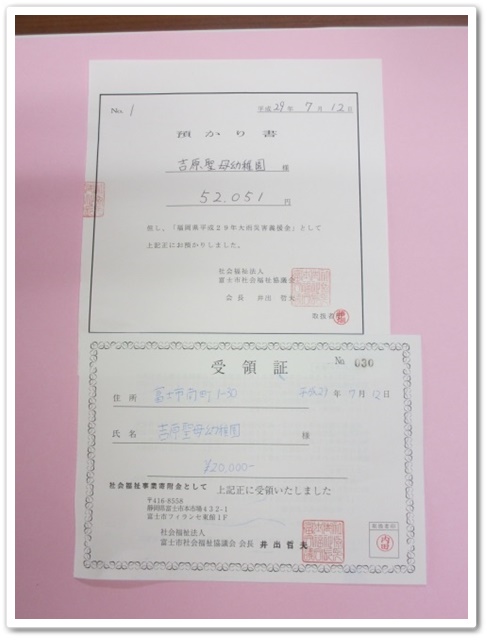 No. 1
平成 29 年 7 月 12 日
預かり書
吉原聖母幼稚園 様
52,051 円
但し、「福岡県平成29年大雨災害義援金」として
上記正にお預かりしました。
社会福祉法人
富士市社会福祉協議会
会長 井出 哲夫
取扱者
受領証
No 030
住所 富士市 町 1-30
平成29 年 7 月 12 日
氏名 吉原聖母幼稚園 様
¥20,000-
社会福祉事業寄附金として 上記正に受領いたしました
〒416-8558
静岡県富士市本市場432-1
富士市フィランセ東館1F
社会福祉法人
富士市社会福祉協議会 会長 井出哲夫
取扱者印